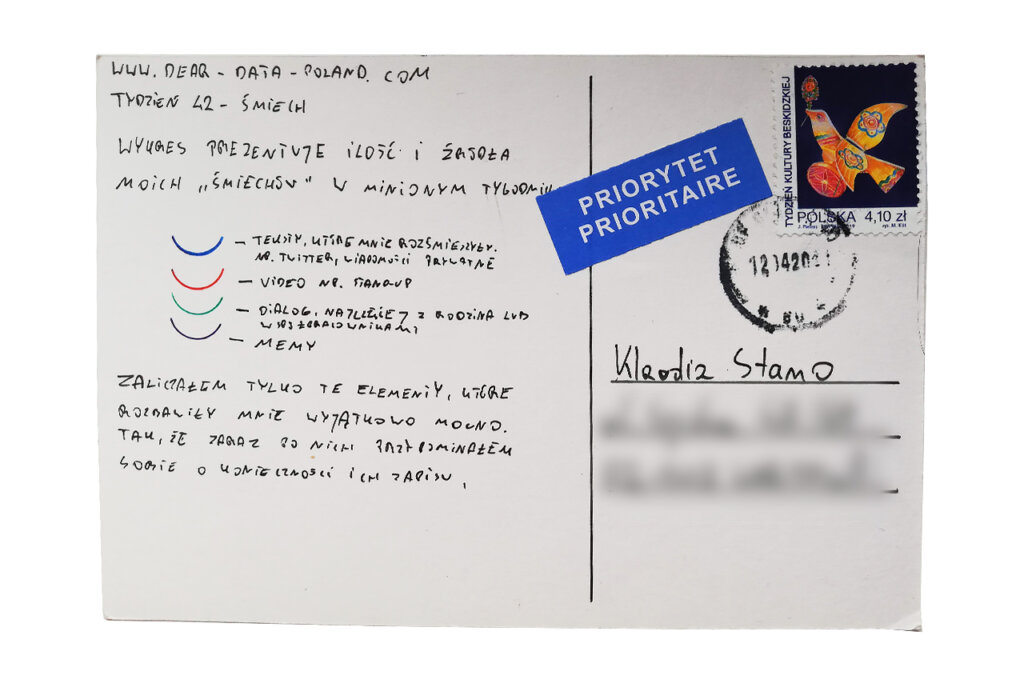 WWW.DEAR-DATA-POLAND.COM
TYDZIEŃ 42 - ŚMIECH
WYKRES PREZENTUJE ILOŚĆ I ŹRÓDŁA
MOICH „ŚMIECHÓW" W MINIONYM TYGODNIU
- TEKSTY, KTÓRE MNIE ROZŚMIESZYŁY.
NP. TWITTER, WIADOMOŚCI PRYWATNE
- VIDEO NP. STANDUP
- DIALOG, NAJCZĘŚCIEJ Z RODZINĄ LUB
WSPÓŁPRACOWNIKAMI
- MEMY
ZALICZAŁEM TYLKO TE ELEMENTY, KTÓRE
ROZBAWIŁY MNIE WYJĄTKOWO MOCNO.
TAK, ŻE ZARAZ PO NICH PRZYPOMINAŁEM
SOBIE O KONIECZNOŚCI ICH ZAPISU.
PRIORYTET
PRIORITAIRE
TYDZIEŃ KULTURY BESKIDZKIEJ
POLSKA 4,10 zł
Klaudia Stano